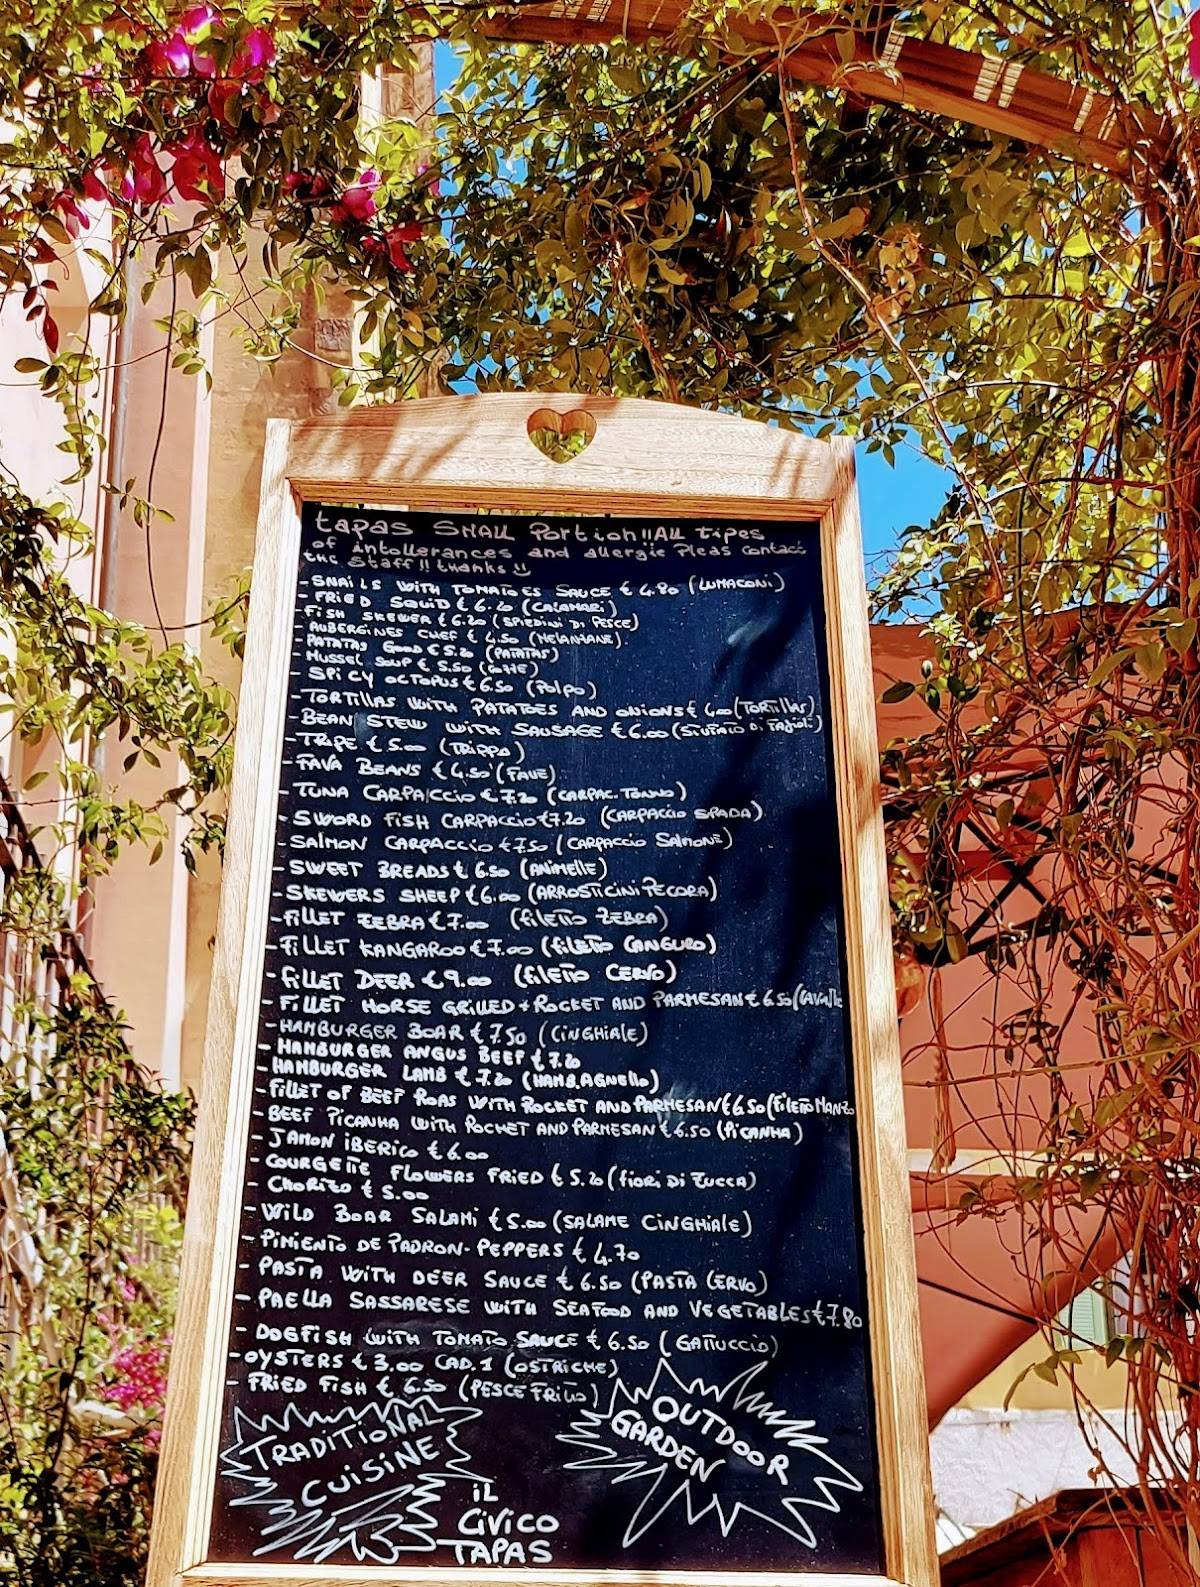 tapas SMALL Portion!!All tipes
of intollerances and allergie Pleas contact
the staff!! thanks!!
- SNAILS WITH TOMATOES SAUCE € 4.80 (LUMACONI)
- FRIED SQUID € 6.20 (CALAMARI)
- FISH SKEWER € 6.20 (SPIEDINI DI PESCE)
- AUBERGINES CHEF € 4.50 (MELANHANE)
- PATATAS GOOD € 5.20 (PATATAS)
- MUSSEL SOUP € 5.50 (COZZE)
- SPICY OCTOPUS € 6.50 (POLPO)
- TORTILLAS WITH PATATOES AND ONIONS € 4.00 (TORTILLAS)
- BEAN STEW WITH SAUSAGE € 6.00 (STUFATO DI FAGIOLI)
- TRIPE € 5.00 (TRIPPA)
- FAVA BEANS € 4.50 (FAVE)
- TUNA CARPACCIO € 7.20 (CARPAC. TONNO)
- SWORD FISH CARPACCIO € 7.20 (CARPACCIO SPADA)
- SALMON CARPACCIO € 7.50 (CARPACCIO SALMONE)
- SWEET BREADS € 6.50 (ANIMELLE)
- SKEWERS SHEEP € 6.00 (ARROSTICINI PECORA)
- FILLET ZEBRA € 7.00 (FILETTO ZEBRA)
- FILLET KANGAROO € 7.00 (FILETTO CANGURO)
- FILLET DEER € 9.00 (FILETTO CERVO)
- FILLET HORSE GRILLED + ROCKET AND PARMESAN € 6.50
- HAMBURGER BOAR € 7.50 (CINGHIALE)
- HAMBURGER ANGUS BEEF € 7.20
- HAMBURGER LAMB € 7.20 (HAMB. AGNELLO)
- FILLET OF BEEF ROAS WITH ROCKET AND PARMESAN € 6.50 (FILETTO MANZO
- BEEF PICANHA WITH ROCHET AND PARMESAN € 6.50 (PICANHA)
- JAMON IBERICO € 6.00
- COURGETTE FLOWERS FRIED € 5.20 (FIORI DI ZUCCA)
- CHORIZO € 5.00
- WILD BOAR SALAMI € 5.00 (SALAME CINGHIALE)
- PIMIENTO DE PADRON - PEPPERS € 4.70
- PASTA WITH DEER SAUCE € 6.50 (PASTA CERVO)
- PAELLA SASSARESE WITH SEAFOOD AND VEGETABLES € 7.80
- DOGFISH WITH TOMATO SAUCE € 6.50 (GATTUCCIO)
- OYSTERS € 3.00 CAD. 1 (OSTRICHE)
- FRIED FISH € 6.50 (PESCE FRITTO)
TRADITIONAL
CUISINE
OUTDOOR
GARDEN
iL
CIVICO
TAPAS